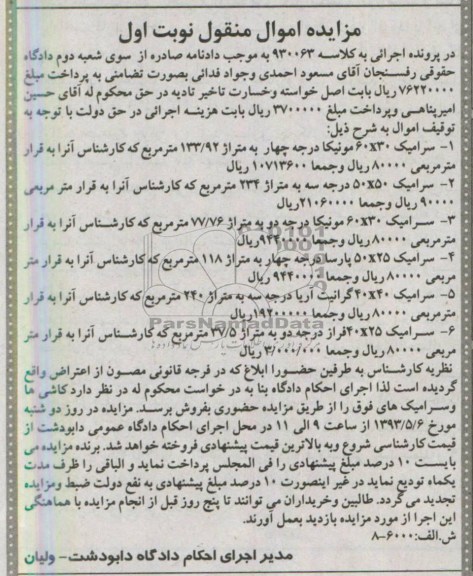 مزایده اموال منقول نوبت اول
در پرونده اجرائی به کلاسه ۹۳۰۰۶۳ به موجب دادنامه صادره از سوی شعبه دوم دادگاه
حقوقی رفسنجان آقای مسعود احمدی وجواد فدائی بصورت تضامنی به پرداخت مبلغ
۷۶۲۲۰۰۰۰ ریال بابت اصل خواسته وخسارت تاخیر تادیه در حق محکوم له آقای حسین
امیرپناهی وپرداخت مبلغ ۳۷۰۰۰۰۰ ریال بابت هزینه اجرائی در حق دولت با توجه به
توقیف اموال به شرح ذیل:
۱- سرامیک ۶۰x۳۰ مونیکا درجه چهار به متراژ ۱۳۳/۹۲ مترمربع که کارشناس آنرا به قرار
مترمربعی ۸۰۰۰۰ ریال وجمعا ۱۰۷۱۳۶۰۰ ریال
۲- سرامیک ۵۰x۵۰ درجه سه به متراژ ۲۳۴ مترمربع که کارشناس آنرا به قرار متر مربعی
۹۰۰۰۰ ریال وجمعا ۲۱۰۶۰۰۰۰ریال
۳- سرامیک ۶۰x۳۰ مونیکا درجه دو به متراژ ۷۷/۷۶ مترمربع که کارشناس آنرا به قرار
مترمربعی ۸۰۰۰۰ ریال وجمعا ریال
۴- سرامیک ۵۰x۲۵ پارسا درجه چهار به متراژ ۱۱۸ مترمربع که کارشناس آنرا به قرار متر
مربعی ۸۰۰۰۰ ریال وجمعا ۹۴۴۰۰۰۰ ریال
۵- سرامیک ۴۰x۴۰ گرانیت آریا درجه سه به متراژ ۲۴۰ مترمربع که کارشناس آنرا به قرار
مترمربعی ۸۰۰۰۰ ریال وجمعا ۱۹۲۰۰۰۰۰ ریال
۶- سرامیک ۴۰x۲۵فراز درجه دو به متراژ ۳۷/۵ مترمربع که کارشناس آنرا به قرار متر
مربعی ۸۰۰۰۰ ریال وجمعا ۳/۰۰۰/۰۰۰ ریال
نظریه کارشناس به طرفین حضورا ابلاغ که در فرجه قانونی مصون از اعتراض واقع
گردیده است لذا اجرای احکام دادگاه بنا به در خواست محکوم له در نظر دارد کاشی ها
وسرامیک های فوق را از طریق مزایده حضوری بفروش برسد. مزایده در روز دو شنبه
مورخ ۱۳۹۳/۵/۶ از ساعت ۹ الی ۱۱ در محل اجرای احکام دادگاه عمومی دابودشت از
قیمت کارشناسی شروع وبه بالاترین قیمت پیشنهادی فروخته خواهد شد. برنده مزایده می
بایست ۱۰ درصد مبلغ پیشنهادی را فی المجلس پرداخت نماید و الباقی را ظرف مدت
یکماه تودیع نماید در غیر اینصورت ۱۰ درصد مبلغ پیشنهادی به نفع دولت ضبط ومزایده
تجدید می گردد. طالبین وخریداران می توانند تا پنج روز قبل از انجام مزایده با هماهنگی
این اجرا از مورد مزایده بازدید بعمل آورند.
ش.الف:۶۰۰۰-۸
مدیر اجرای احکام دادگاه دابودشت- ولیان
ParsNamadData